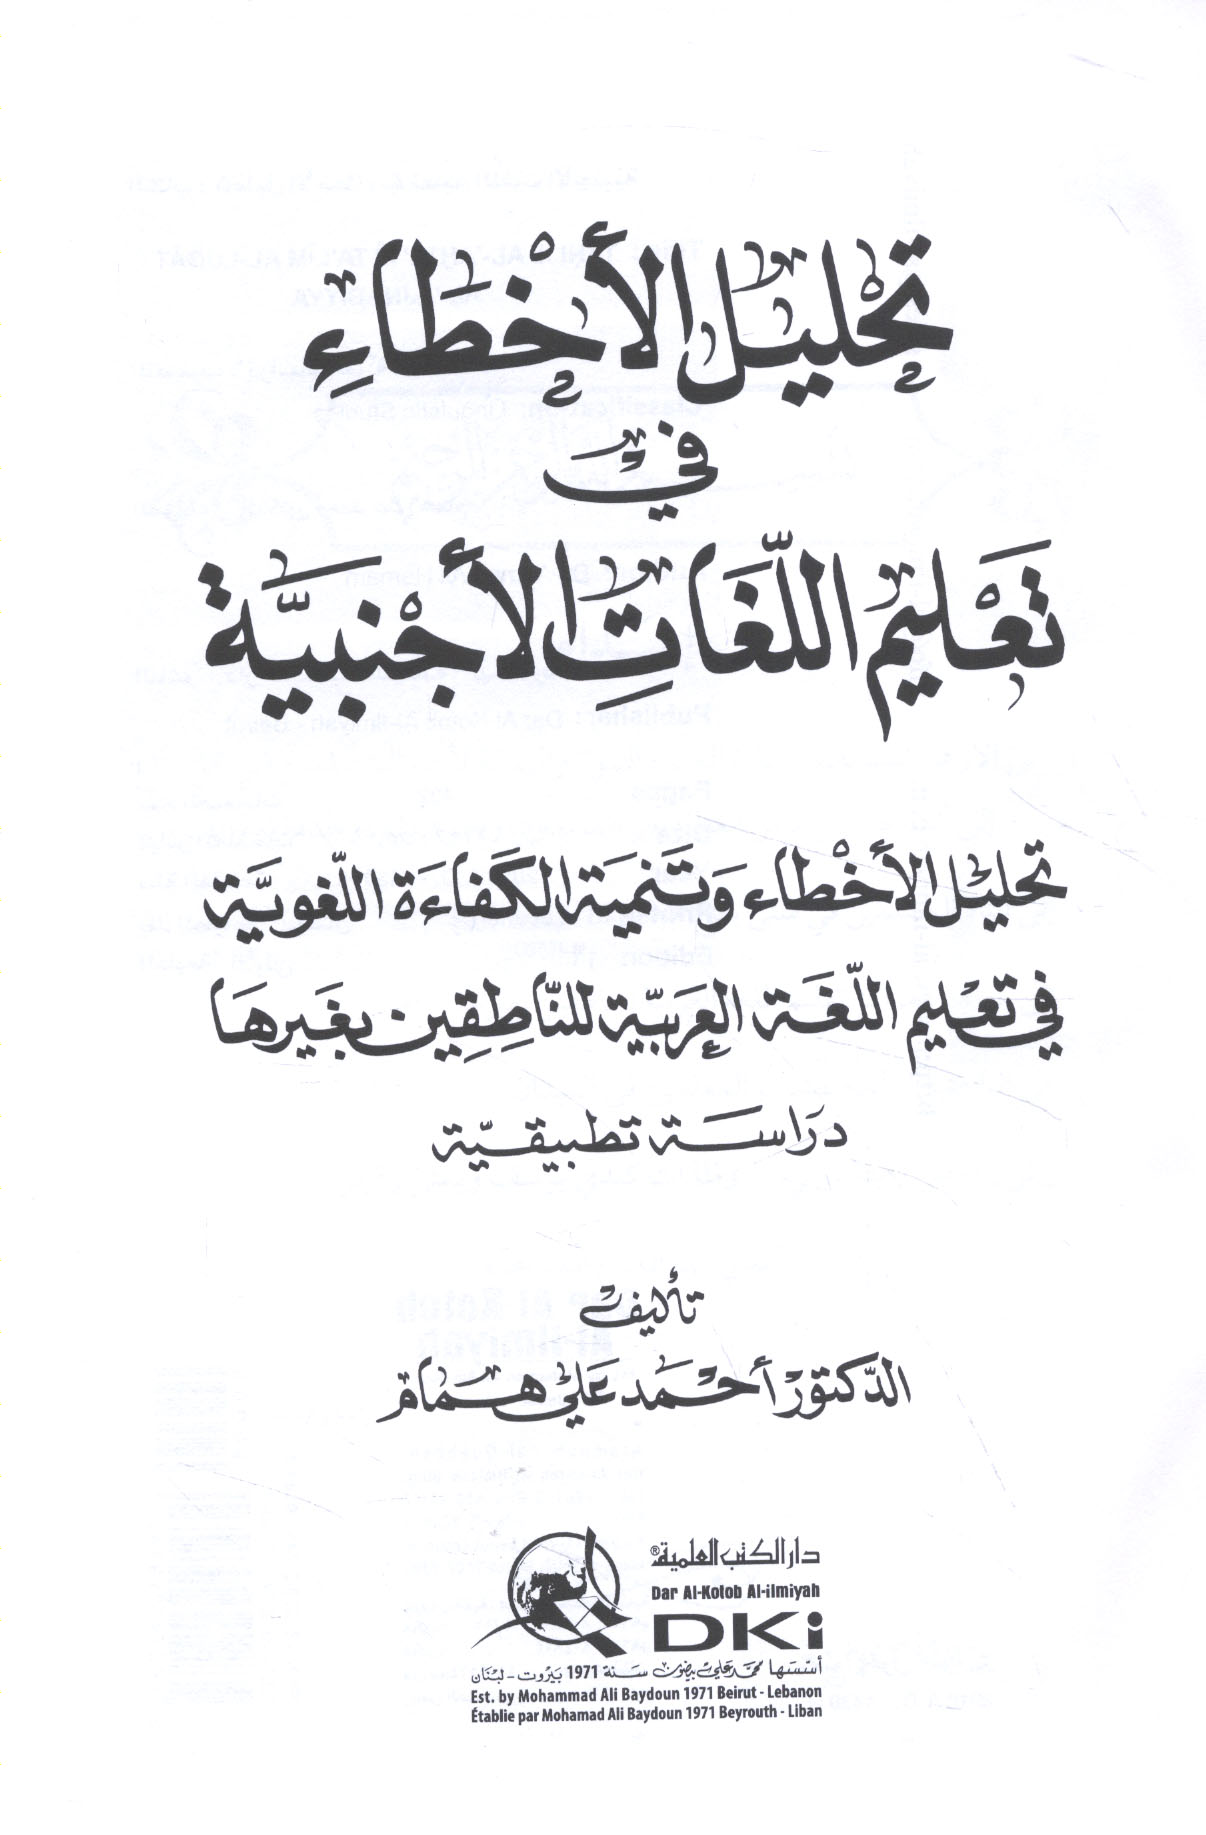 تحليل الأخطاء
في
تعليم اللغات الأجنبية
تحليل الأخطاء وتنمية الكفاءة اللغوية
في تعليم اللغة العربية للناطقين بغيرها
دراسة تطبيقية
تأليف
الدكتور أحمد علي همام
دار الكتب العلمية®
Dar Al-Kotob Al-ilmiyah
DKi
أسسها محمد علي بيضون سنة 1971 بيروت - لبنان
Est. by Mohammad Ali Baydoun 1971 Beirut - Lebanon
Établie par Mohamad Ali Baydoun 1971 Beyrouth - Liban